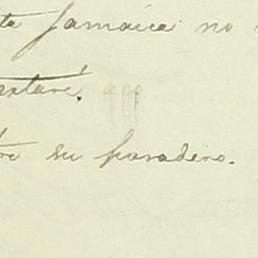 ta Jamaica no
estaré.
tre su paradero.